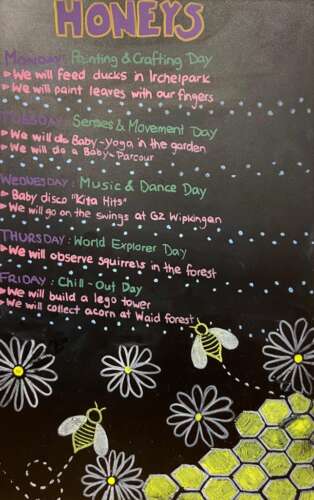 HONEYS
MONDAY: Painting & Crafting Day
▸We will feed ducks in Irchelpark
▸We will paint leaves with our fingers
TUESDAY: Senses & Movement Day
▸We will do Baby-Yoga in the garden
▸We will do a Baby-Parcour
WEDNESDAY: Music & Dance Day
▸Baby disco "Kita Hits"
▸We will go on the swings at GZ Wipkingen
THURSDAY: World Explorer Day
▸We will observe squirrels in the forest
FRIDAY: Chill-Out Day
▸We will build a lego tower
▸We will collect acorn at Waid forest